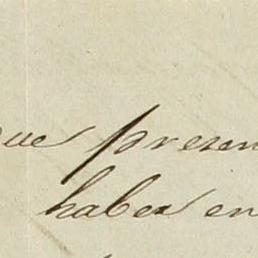 que presen
haber en